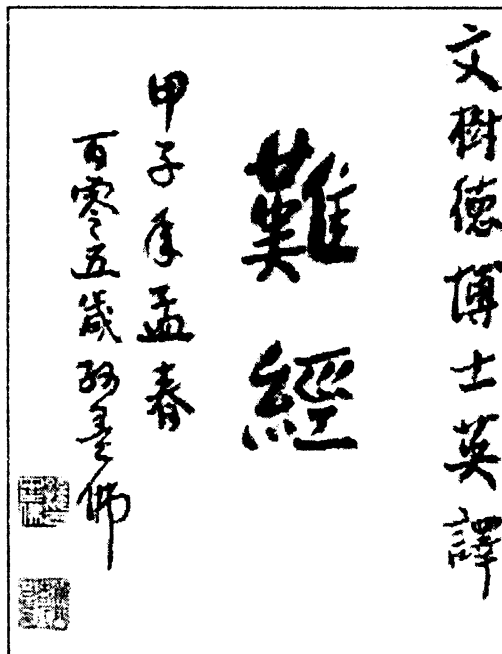 文樹德博士英譯
難經
甲子年孟春
百零五歲孙墨佛